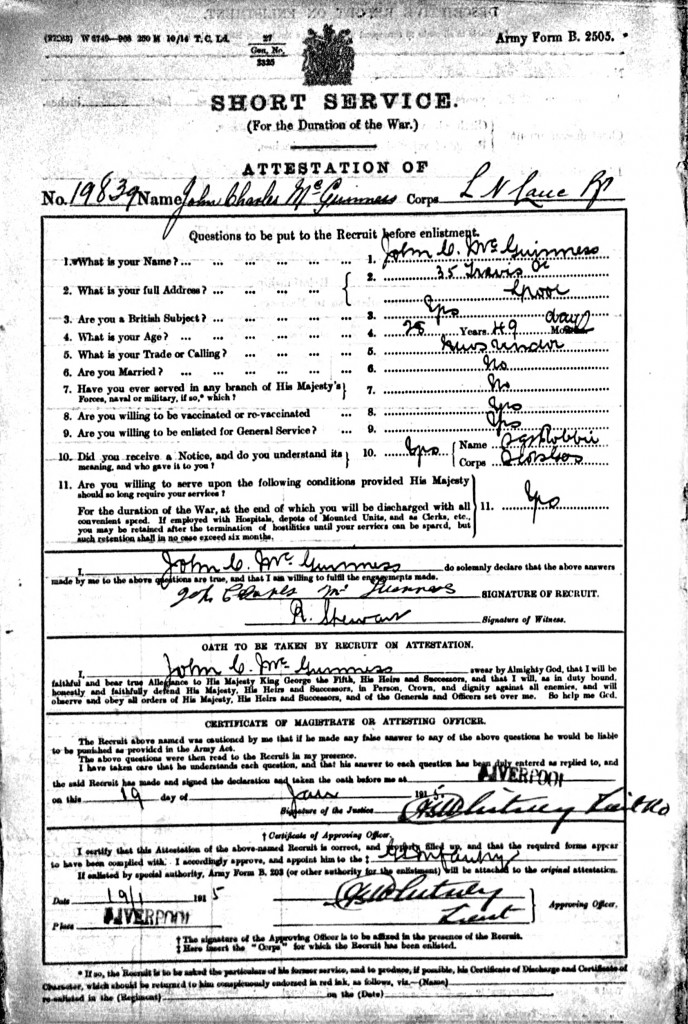 (27088) W 6749—966 250 M 10/14 T. C. Ld. 27
Gen. No.
2325
Army Form B. 2505.
SHORT SERVICE.
(For the Duration of the War.)
ATTESTATION OF
No. 19839 Name John Charles McGuinness Corps L N Lanc
Questions to be put to the Recruit before enlistment.
1. What is your Name? ... 1. John C. McGuinness
2. What is your full Address? ... 2. 35 Travis St
Lpool
3. Are you a British Subject? ... 3. Yes
4. What is your Age? ... 4. 28 Years 49 days
5. What is your Trade or Calling? ... 5.
6. Are you Married? ... 6. No
7. Have you ever served in any branch of His Majesty's Forces, naval or military, if so,* which? 7. No
8. Are you willing to be vaccinated or re-vaccinated ... 8. Yes
9. Are you willing to be enlisted for General Service? ... 9. Yes
10. Did you receive a Notice, and do you understand its meaning, and who gave it to you? 10. Yes Name Sgt
Corps
11. Are you willing to serve upon the following conditions provided His Majesty should so long require your services?
For the duration of the War, at the end of which you will be discharged with all
convenient speed. If employed with Hospitals, depots of Mounted Units, and as Clerks, etc., 11. Yes
you may be retained after the termination of hostilities until your services can be spared, but
such retention shall in no case exceed six months.
I, John C. McGuinness do solemnly declare that the above answers
made by me to the above questions are true, and that I am willing to fulfil the engagements made.
John Charles McGuinness SIGNATURE OF RECRUIT.
R. Stewart Signature of Witness.
OATH TO BE TAKEN BY RECRUIT ON ATTESTATION.
I, John C. McGuinness swear by Almighty God, that I will be
faithful and bear true Allegiance to His Majesty King George the Fifth, His Heirs and Successors, and that I will, as in duty bound,
honestly and faithfully defend His Majesty, His Heirs and Successors, in Person, Crown, and dignity against all enemies, and will
observe and obey all orders of His Majesty, His Heirs and Successors, and of the Generals and Officers set over me. So help me God.
CERTIFICATE OF MAGISTRATE OR ATTESTING OFFICER.
The Recruit above named was cautioned by me that if he made any false answer to any of the above questions he would be liable
to be punished as provided in the Army Act.
The above questions were then read to the Recruit in my presence.
I have taken care that he understands each question, and that his answer to each question has been duly entered as replied to, and
the said Recruit has made and signed the declaration and taken the oath before me at LIVERPOOL
on this 19 day of Jan 1915.
Signature of the Justice Whitney Lieut
† Certificate of Approving Officer.
I certify that this Attestation of the above-named Recruit is correct, and properly filled up, and that the required forms appear
to have been complied with. I accordingly approve, and appoint him to the ‡ Infantry
If enlisted by special authority, Army Form B. 203 (or other authority for the enlistment) will be attached to the original attestation.
Date 19/1 1915
Whitney
Lieut
Approving Officer.
Place LIVERPOOL
† The signature of the Approving Officer is to be affixed in the presence of the Recruit.
‡ Here insert the "Corps" for which the Recruit has been enlisted.
* If so, the Recruit is to be asked the particulars of his former service, and to produce, if possible, his Certificate of Discharge and Certificate of
Character, which should be returned to him conspicuously endorsed in red ink, as follows, viz.—(Name)
re-enlisted in the (Regiment) on the (Date)